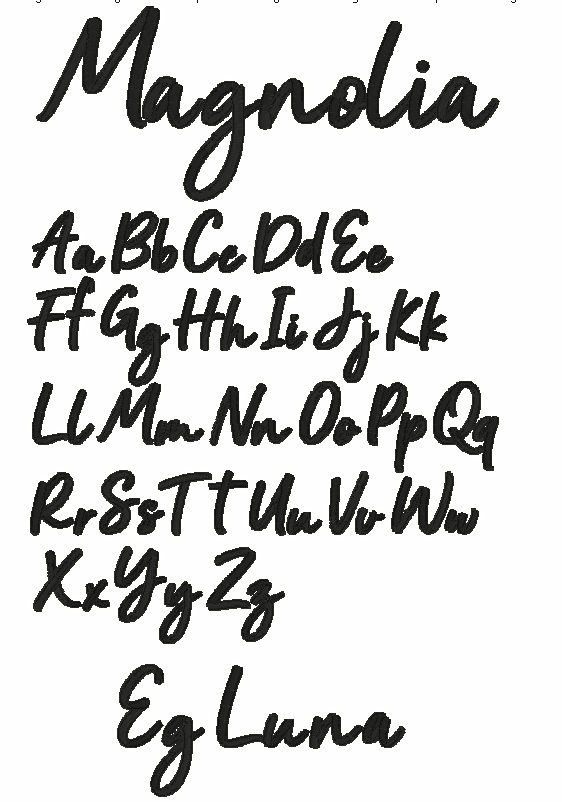 Magnolia
Aa Bb Cc Dd Ee
Ff Gg Hh Ii Jj Kk
Ll Mm Nn Oo Pp Qq
Rr Ss Tt Uu Vv Ww
Xx Yy Zz
Eg Luna